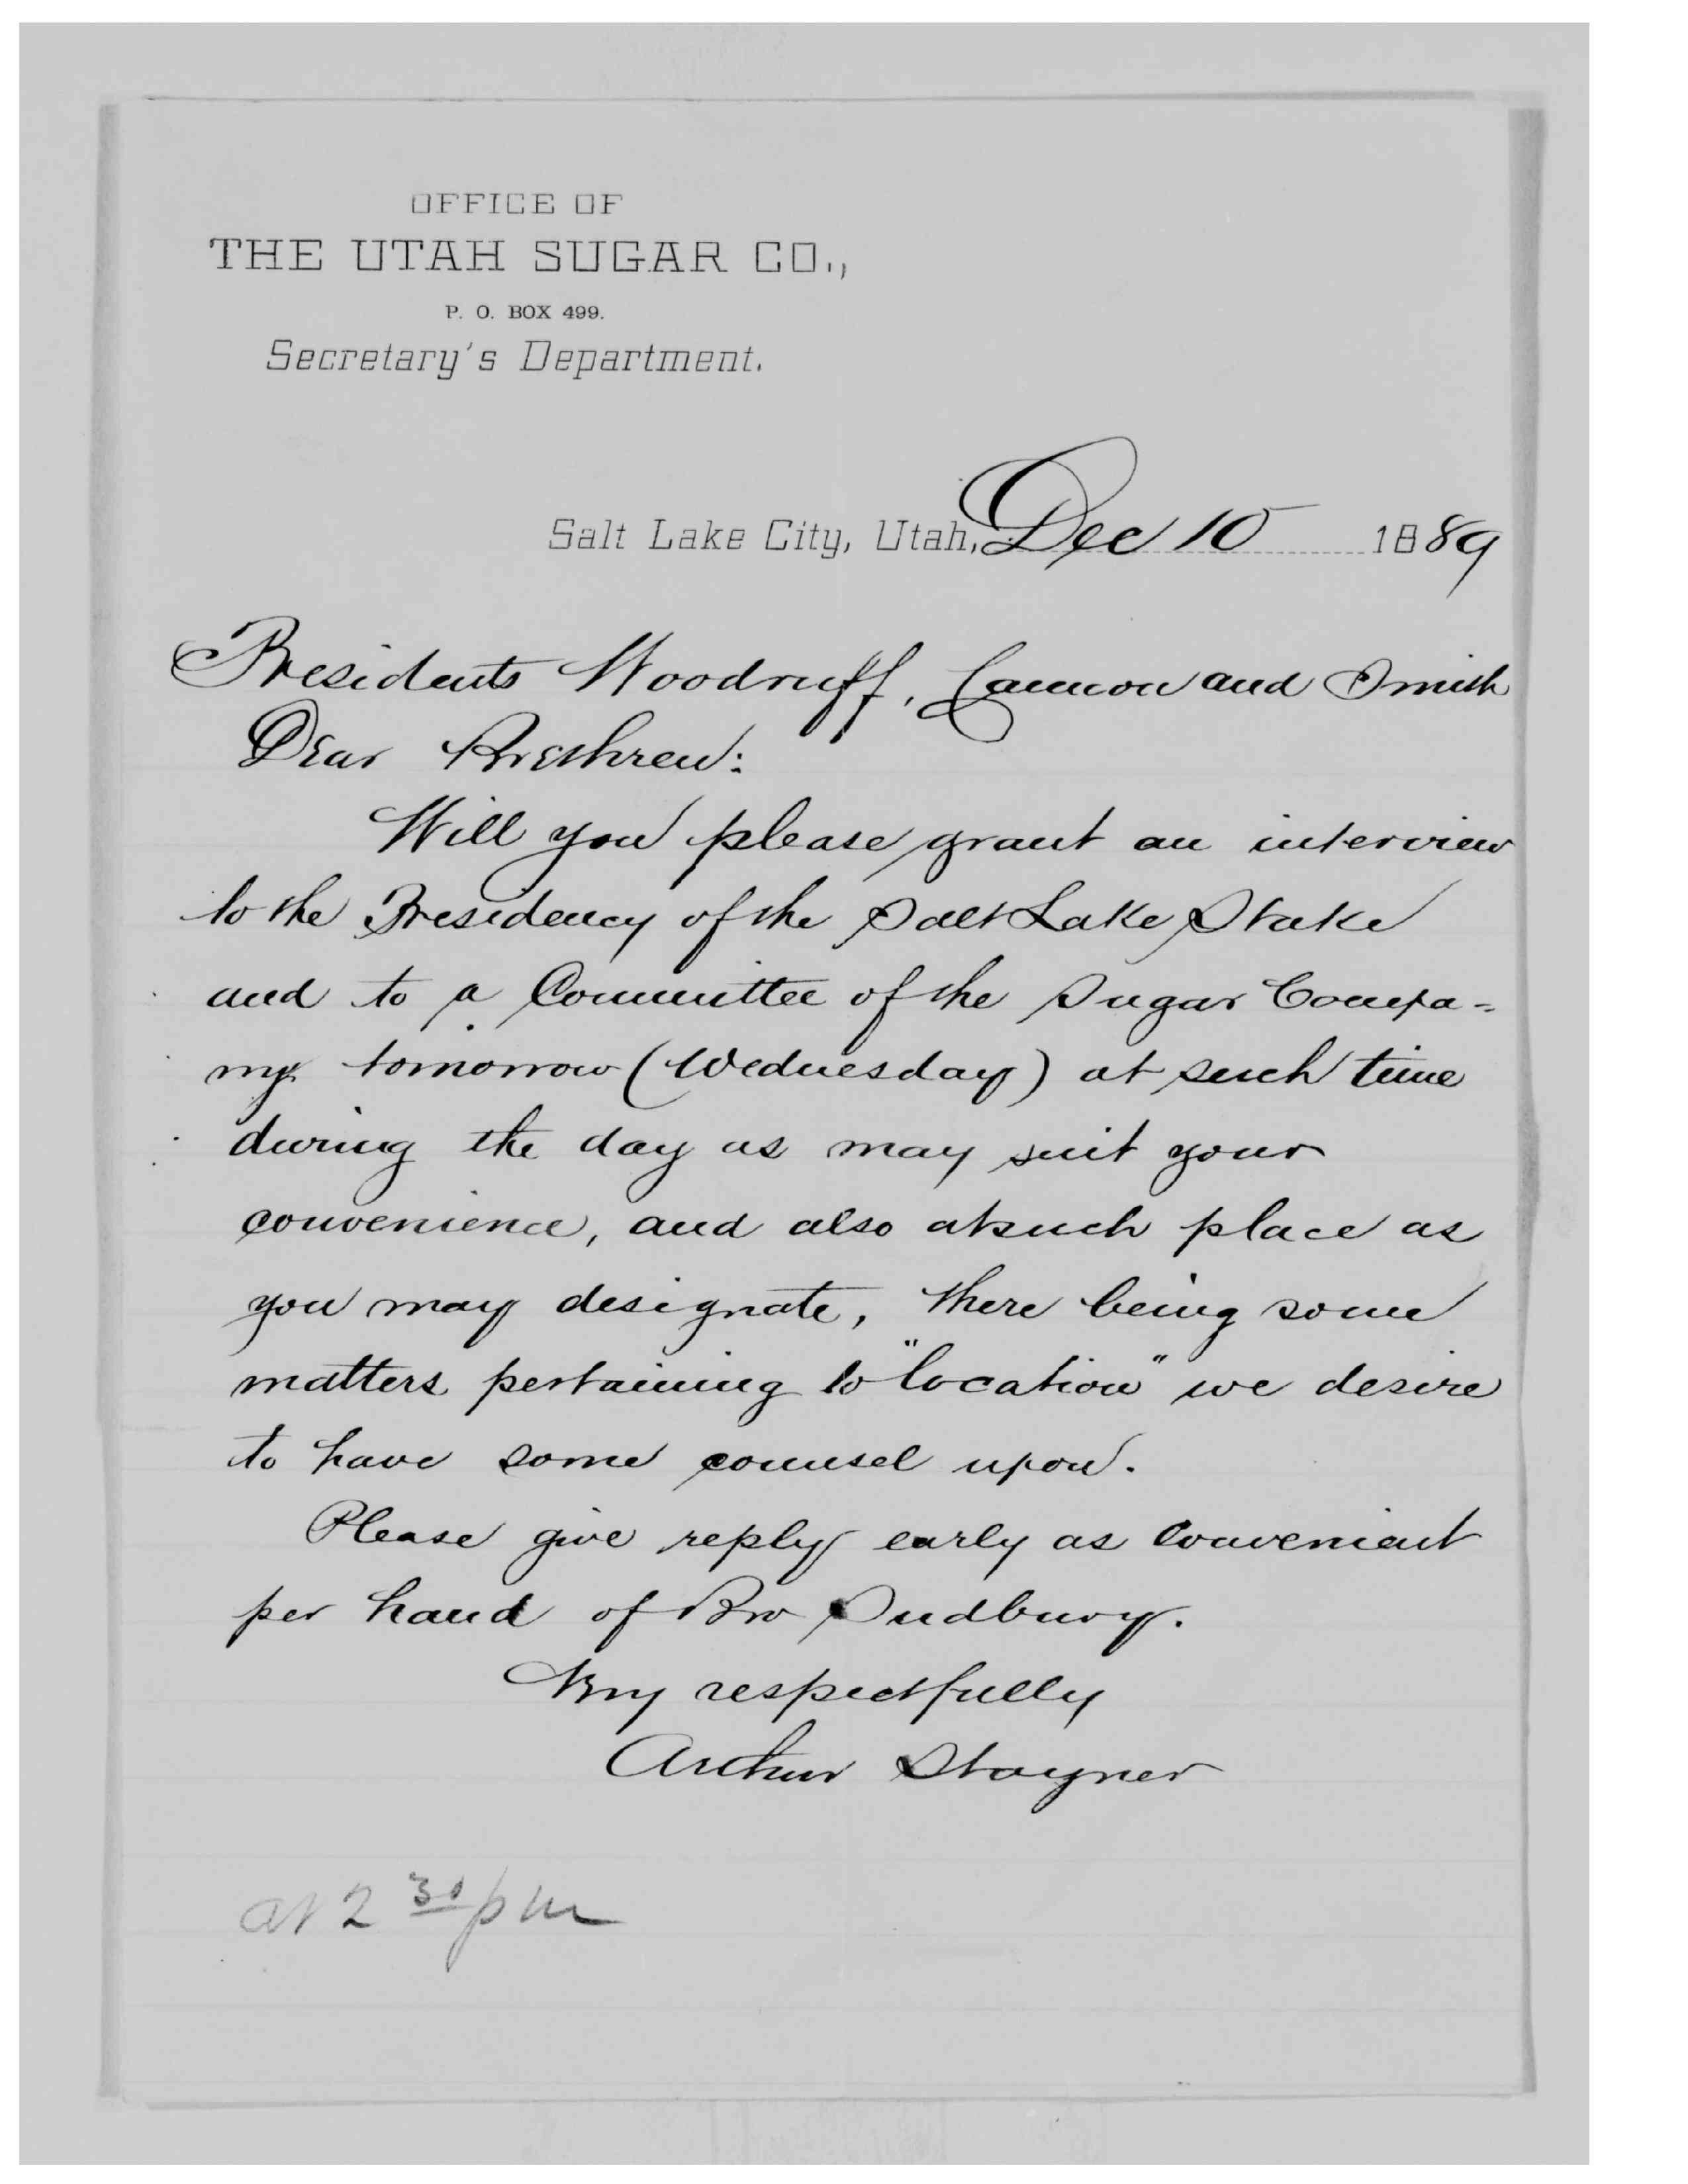 OFFICE OF
THE UTAH SUGAR CO.,
P. O. BOX 499.
Secretary's Department.
Salt Lake City, Utah, Dec 10 1889
Presidents Woodruff, Cannon and Smith
Dear Brethren:
Will you please grant an interview
to the Presidency of the Salt Lake Stake
and to a Committee of the Sugar Compa=
ny tomorrow (Wednesday) at such time
during the day as may suit your
convenience, and also at such place as
you may designate, there being some
matters pertaining to "location" we desire
to have some counsel upon.
Please give reply early as convenient
per hand of Bro Sudbury.
Very respectfully
Arthur Stayner
at 2 30 pm